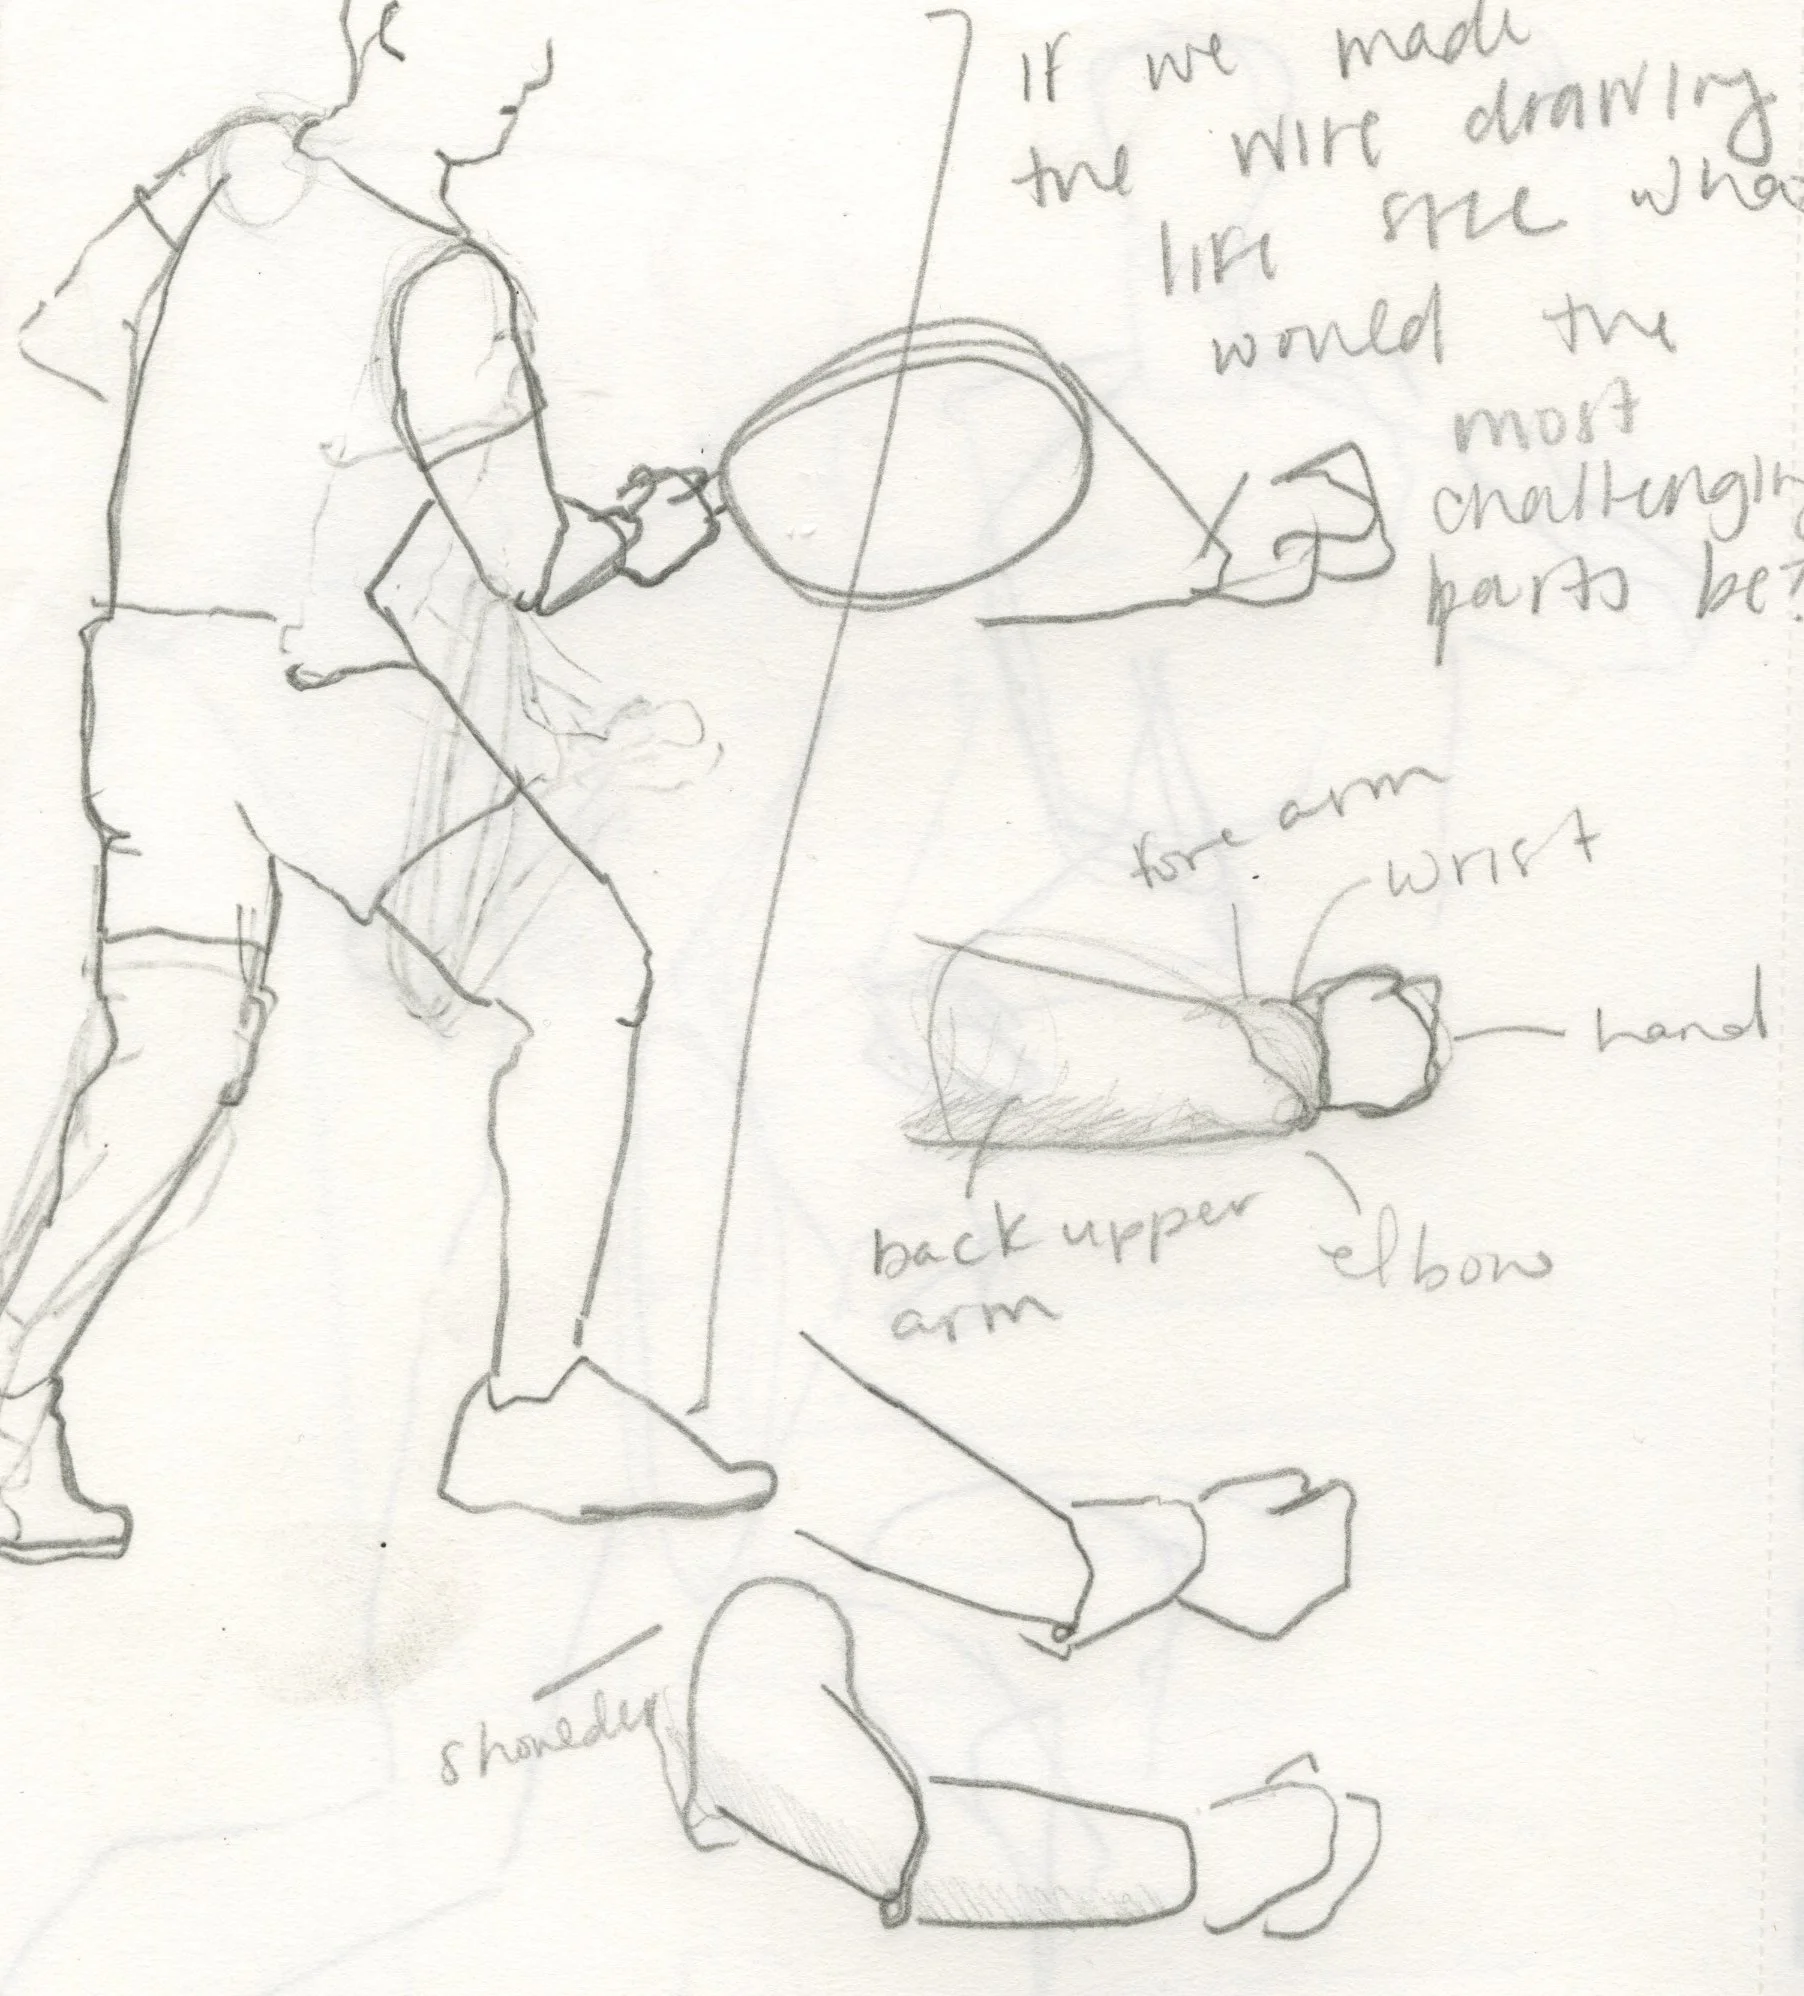 If we made
the wire drawing
life size what
would the
most
challenging
parts be?
fore arm
wrist
hand
back upper
arm
elbow
shoulder